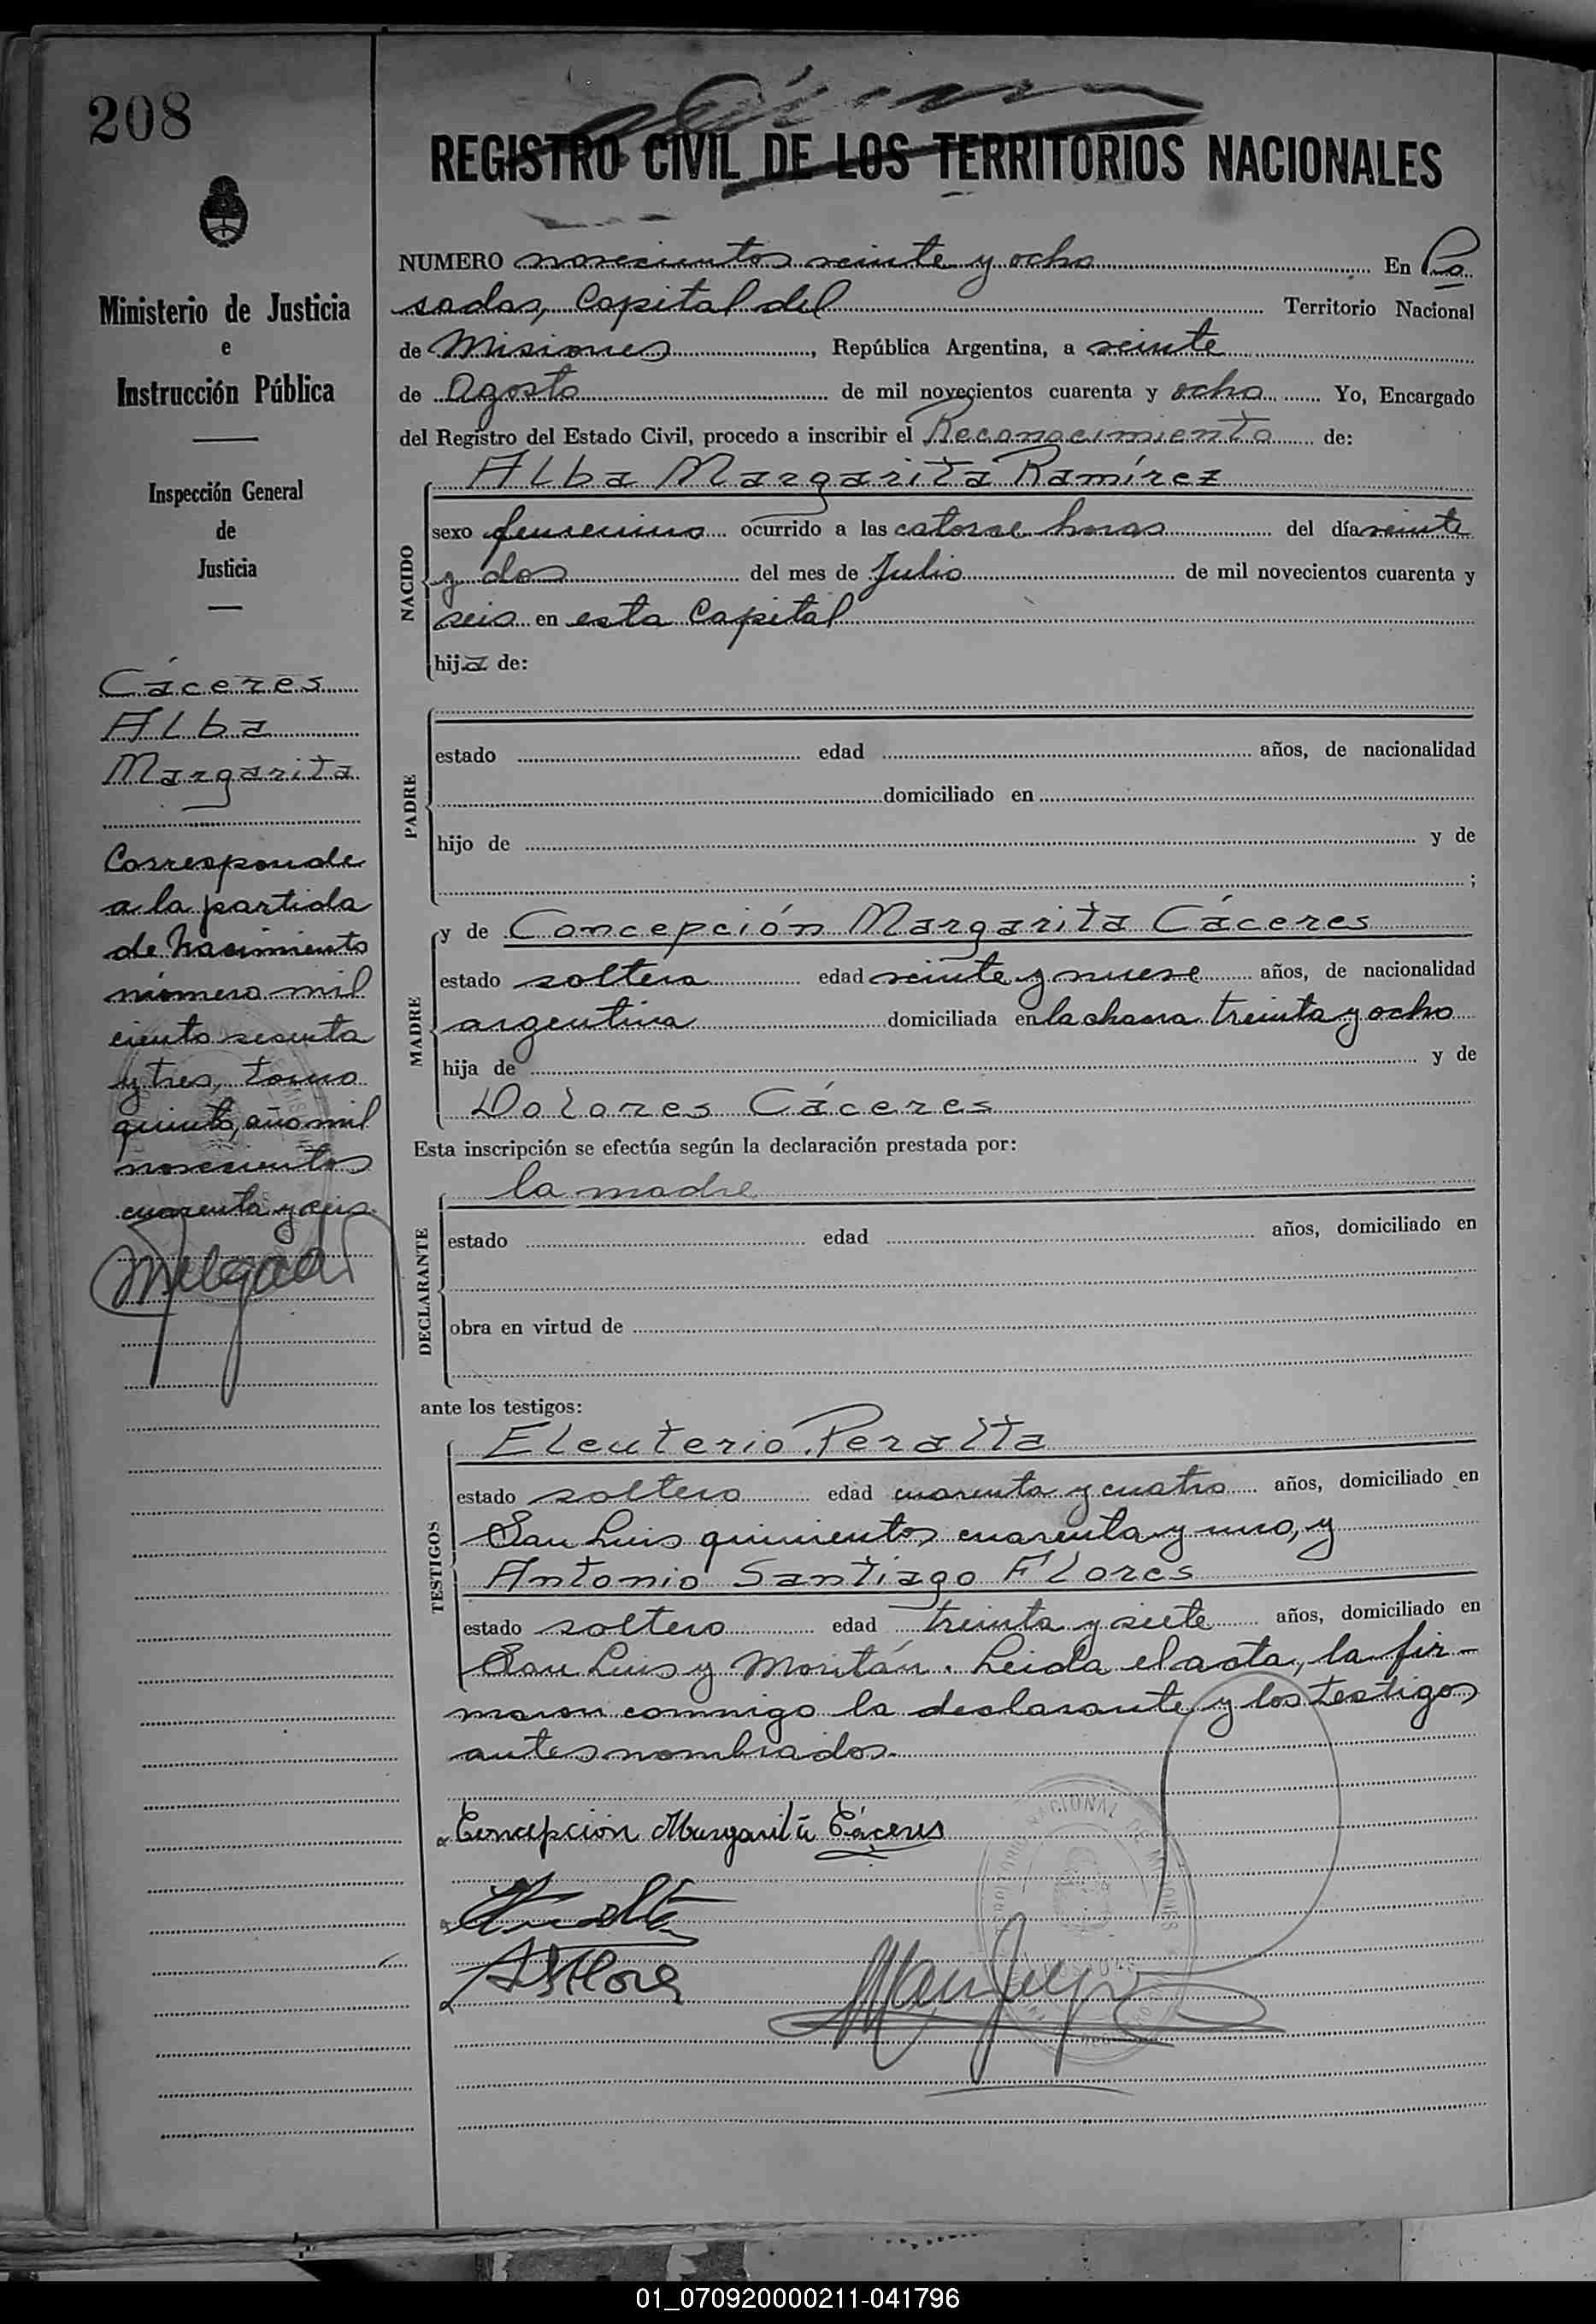 208
Ministerio de Justicia
e
Instrucción Pública
Inspección General
de
Justicia
Cáceres
Alba
Margarita
Corresponde
a la partida
de Nacimiento
número mil
ciento sesenta
y tres, tomo
quinto, año mil
novecientos
cuarenta y seis.
REGISTRO CIVIL DE LOS TERRITORIOS NACIONALES
NUMERO novecientos veinte y ocho En Po
sadas, Capital del Territorio Nacional
de Misiones, República Argentina, a veinte
de Agosto de mil novecientos cuarenta y ocho Yo, Encargado
del Registro del Estado Civil, procedo a inscribir el Reconocimiento de:
Alba Margarita Ramírez
NACIDO
sexo femenino ocurrido a las catorce horas del día veinte
y dos del mes de Julio de mil novecientos cuarenta y
seis en esta Capital
hija de:
PADRE
estado edad años, de nacionalidad
domiciliado en
hijo de y de
;
MADRE
y de Concepción Margarita Cáceres
estado soltera edad veinte y nueve años, de nacionalidad
argentina domiciliada en la chacra treinta y ocho
hija de y de
Dolores Cáceres
Esta inscripción se efectúa según la declaración prestada por:
la madre
DECLARANTE
estado edad años, domiciliado en
obra en virtud de
ante los testigos:
Eleuterio Peralta
TESTIGOS
estado soltero edad cuarenta y cuatro años, domiciliado en
San Luis quinientos cuarenta y uno, y
Antonio Santiago Flores
estado soltero edad treinta y siete años, domiciliado en
San Luis y Moritán. Leida el acta, la fir-
maron conmigo la declarante y los testigos
antes nombrados.
Concepción Margarita Cáceres
ASFlores
01_070920000211-041796